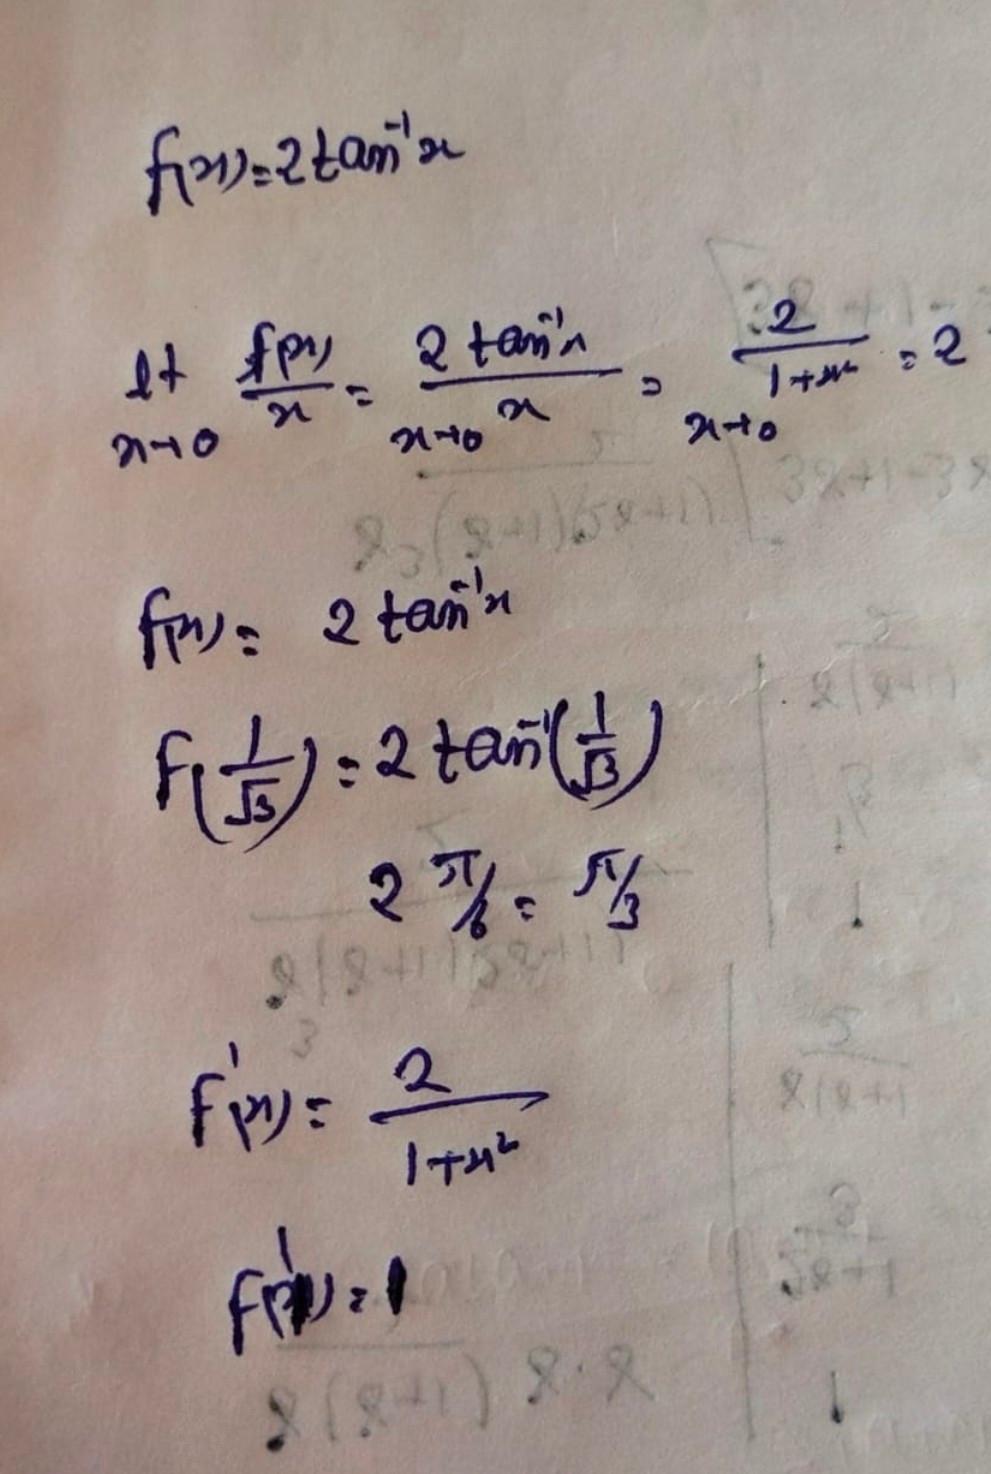 f(x)=2tan⁻¹x
lt x→0 f(x)/x = x→0 2tan⁻¹x/x = x→0 2/(1+x²) = 2
f(x) = 2 tan⁻¹x
f(1/√3) = 2 tan⁻¹(1/√3)
2 π/6 = π/3
f'(x) = 2/(1+x²)
f'(1) = 1